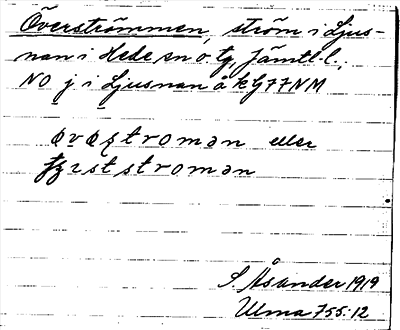 Överströmmen, ström i Ljus-
nan i Hede sn o. tg, Jämtl. l.,
NO j i Ljusnan å kG77NM
øvəstroman eller
strøman
S. Åsander 1919
Ulma 755:12